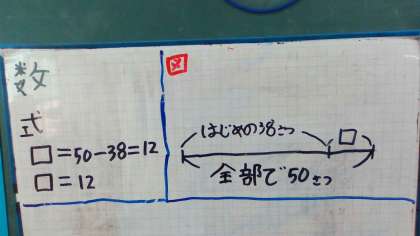 数
式
□=50-38=12
□=12
図
はじめの38さつ
□
全部で50さつ